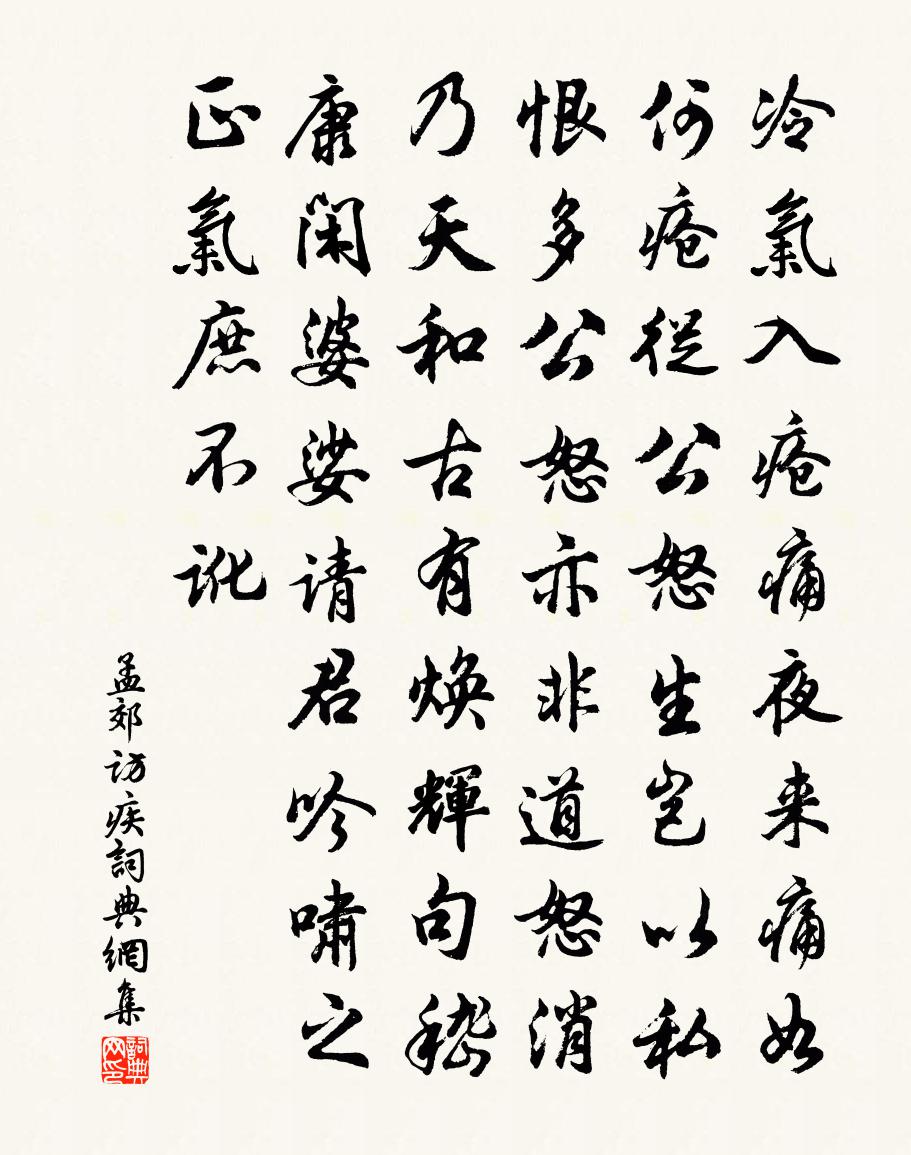 冷氣入疮痛夜来痛如
何疮從公怒生岂以私
恨多公怒亦非道怒消
乃天和古有焕輝句嵇
康闲婆娑请君吟啸之
正氣庶不讹
孟郊访疾詞典網集
詞典网印